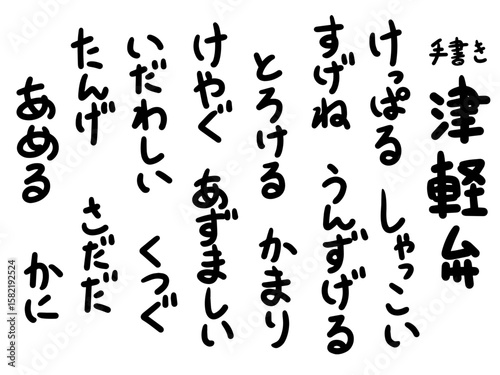 手書き
津軽弁
けっぱる しゃっこい
すげね うんずげる
とろける かまり
けやぐ あずましい
いだわしい くつぐ
たんげ さだだ
あめる かに
Adobe Stock | #1582192524